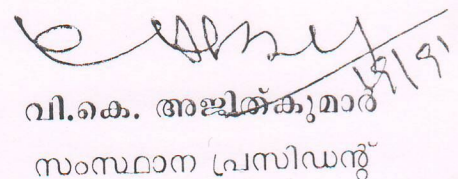 19/91
വി.കെ. അജിത്കുമാർ
സംസ്ഥാന പ്രസിഡന്റ്